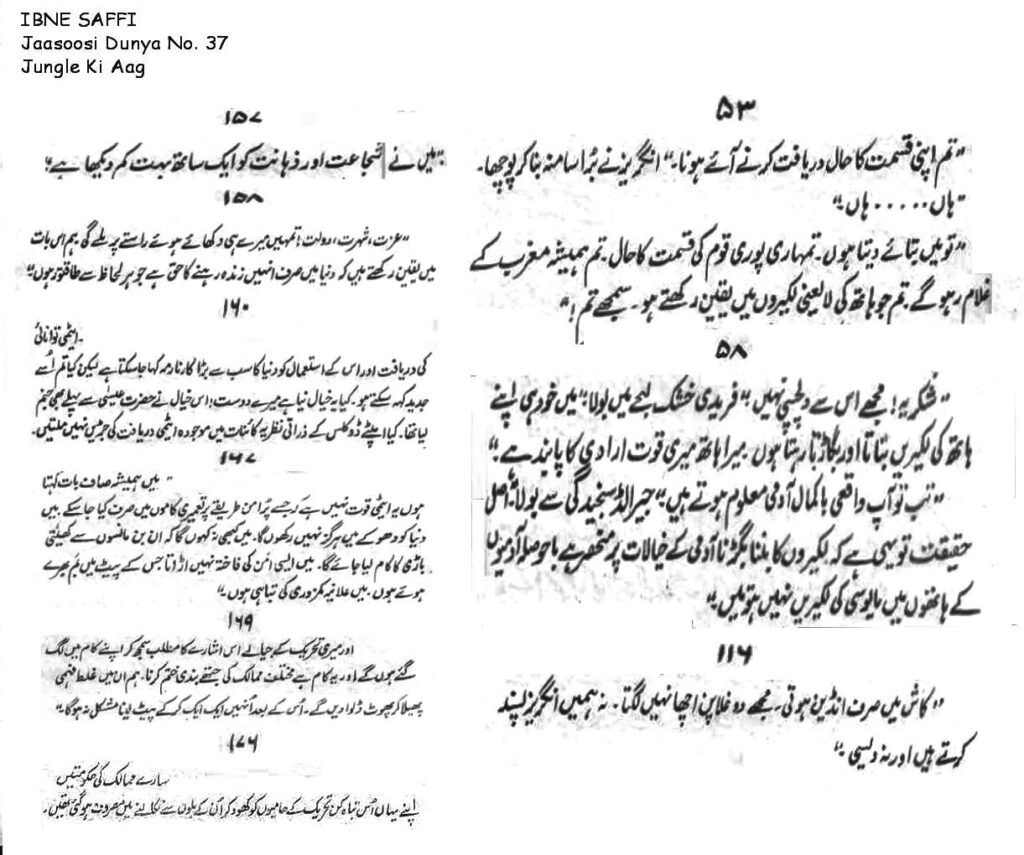 IBNE SAFFI
Jaasoosi Dunya No. 37
Jungle Ki Aag
۵۳
"تم اپنی قسمت کا حال دریافت کرنے آئے ہونا۔" انگریز نے بُرا سا منہ بنا کر پوچھا۔
"ہاں ..... ہاں۔"
"تو میں بتائے دیتا ہوں۔ تمہاری پوری قوم کی قسمت کا حال۔ تم ہمیشہ مغرب کے
غلام رہو گے۔ تم جو ہاتھ کی لایعنی لکیروں میں یقین رکھتے ہو۔ سمجھے تم!"
۵۸
"شکریہ! مجھے اس سے دلچسپی نہیں" فریدی خشک لہجے میں بولا "میں خود ہی اپنے
ہاتھ کی لکیریں بناتا اور بگاڑتا رہتا ہوں۔ میرا ہاتھ میری قوت ارادی کا پابند ہے۔"
"تب تو آپ واقعی باکمال آدمی معلوم ہوتے ہیں" جیرالڈ سنجیدگی سے بولا "اصل
حقیقت تو یہی ہے کہ لکیروں کا بننا بگڑنا آدمی کے خیالات پر منحصر ہے باحوصلہ آدمیوں
کے ہاتھوں میں مایوسی کی لکیریں نہیں ہوتیں۔"
۱۱۶
"کاش میں صرف انڈین ہوتی۔ مجھے دوغلاپن اچھا نہیں لگتا۔ نہ ہمیں انگریز پسند
کرتے ہیں اور نہ دیسی۔"
۱۵۷
"میں نے شجاعت اور ذہانت کو ایک ساتھ بہت کم دیکھا ہے۔"
۱۵۸
"عزت، شہرت، دولت! تمہیں میرے ہی دکھائے ہوئے راستے پر ملے گی۔ ہم اس بات
میں یقین رکھتے ہیں کہ دنیا میں صرف انہیں زندہ رہنے کا حق ہے جو ہر لحاظ سے طاقتور ہوں"
۱۶۰
۔ ایٹمی توانائی
کی دریافت اور اس کے استعمال کو دنیا کا سب سے بڑا کارنامہ کہا جاسکتا ہے لیکن کیا تم اُسے
جدید کہہ سکتے ہو۔ کیا یہ خیال نیا ہے میرے دوست! اس خیال نے حضرت عیسٰی سے پہلے بھی جنم
لیا تھا۔ کیا کے ذراتی نظریہ کائنات میں موجودہ ایٹمی دریافت کی جڑیں نہیں ملتیں۔
۱۶۷
"میں ہمیشہ صاف بات کہتا
ہوں یہ ایٹمی قوت نہیں ہے جسے پُرامن طریقے پر تعمیری کاموں میں صرف کیا جاسکے۔ میں
دنیا کو دھوکے میں ہرگز نہیں رکھوں گا۔ میں کبھی نہ کہوں گا کہ ان بن مانسوں سے کھیتی
باڑی کا کام لیا جائے گا۔ میں ایسی امن کی فاختہ نہیں اڑاتا جس کے پیٹ میں بم بھرے
ہوتے ہوں۔ میں علانیہ کمزوری کی تباہی ہوں۔"
۱۶۹
اور میری تحریک کے جیالے اس اشارے کا مطلب سمجھ کر اپنے کام میں لگ
گئے ہوں گے اور یہ کام ہے مختلف ممالک کی جتھے بندی ختم کرنا۔ ہم ان میں غلط فہمی
پھیلا کر پھوٹ ڈلوا دیں گے۔ اُس کے بعد اُنہیں ایک ایک کر کے پیٹ لینا مشکل نہ ہوگا۔"
۱۷۶
سارے ممالک کی حکومتیں
اپنے یہاں اس تباہ کن تحریک کے حامیوں کو کھود کر اُن کے بلوں سے نکالنے میں مصروف ہوگئی تھیں۔